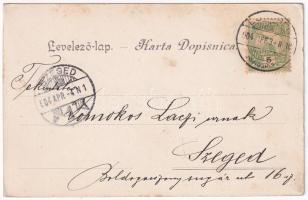 Levelező-lap. — Karta Dopisnica
SZEGED
904 APR
Tekintetes
Lajos urnak
Szeged
Boldogasszony sugár ut 16 sz.